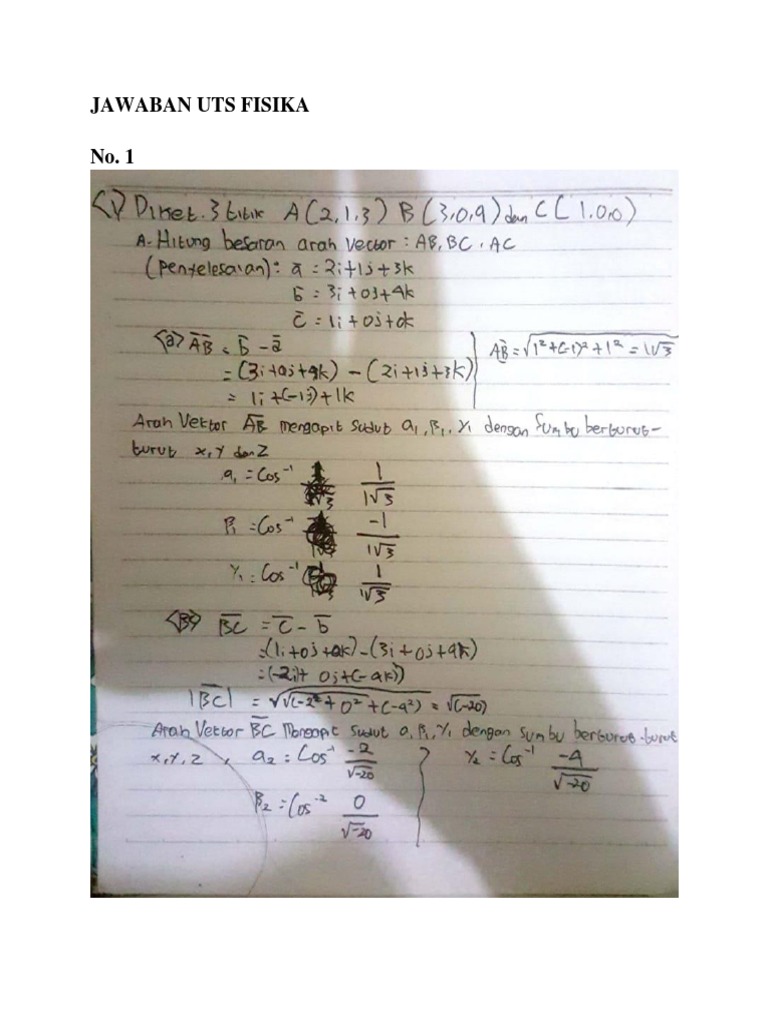 JAWABAN UTS FISIKA
No. 1
<1> Diket. 3 titik A(2,1,3) B(3,0,9) dan C(1.0,0)
A. Hitung besaran arah vector : AB, BC, AC
(Penyelesaian): a = 2i+1j+3k
b = 3i+0j+4k
c = 1i+0j+0k
<a> AB = b - a
= (3i+0j+4k) - (2i+1j+3k)
= 1i+(-1j)+1k
AB = √1²+(-1)²+1² = 1√3
Arah Vektor AB mengapit sudut a1, β1, γ1 dengan sumbu berturut-
turut x, y dan z
a1 = Cos⁻¹ 1/1√3
β1 = Cos⁻¹ -1/1√3
γ1 = Cos⁻¹ 1/1√3
<B> BC = c - b
=(1i+0j+0k)-(3i+0j+4k)
=(-2i)+0j+(-4k))
|BC| = √√(-2²+0²+(-4²) = √(-20)
Arah Vektor BC Mengapit sudut a, β1, γ1 dengan sumbu berturut-turut
x, y, z, a2 = Cos⁻¹ -2/√-20
γ2 = Cos⁻¹ -4/√-20
β2 = Cos⁻² 0/√-20